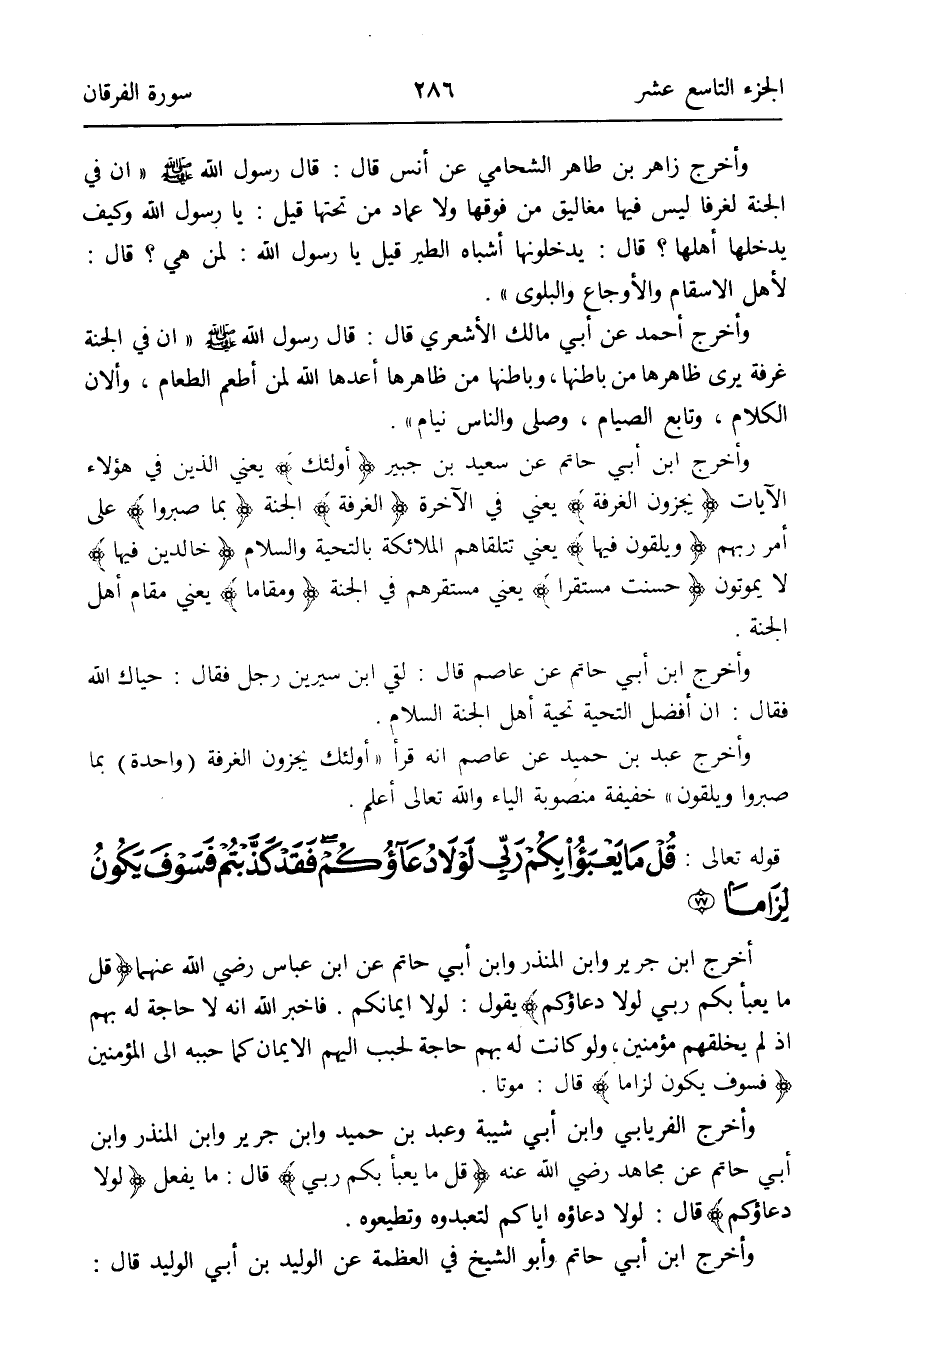 الجزء التاسع عشر ٢٨٦ سورة الفرقان
وأخرج زاهر بن طاهر الشحامي عن أنس قال : قال رسول الله ﷺ « ان في
الجنة لغرفا ليس فيها مغاليق من فوقها ولا عماد من تحتها قيل : يا رسول الله وكيف
يدخلها أهلها ؟ قال : يدخلونها أشباه الطير قيل يا رسول الله : لمن هي ؟ قال :
لأهل الاسقام والأوجاع والبلوى » .
وأخرج أحمد عن أبي مالك الأشعري قال : قال رسول الله ﷺ « ان في الجنة
غرفة يرى ظاهرها من باطنها ، وباطنها من ظاهرها أعدها الله لمن أطعم الطعام ، وألان
الكلام ، وتابع الصيام ، وصلى والناس نيام » .
وأخرج ابن أبي حاتم عن سعيد بن جبير ﴿ أولئك ﴾ يعني الذين في هؤلاء
الآيات ﴿ يجزون الغرفة ﴾ يعني في الآخرة ﴿ الغرفة ﴾ الجنة ﴿ بما صبروا ﴾ على
أمر ربهم ﴿ ويلقون فيها ﴾ يعني تتلقاهم الملائكة بالتحية والسلام ﴿ خالدين فيها ﴾
لا يموتون ﴿ حسنت مستقرا ﴾ يعني مستقرهم في الجنة ﴿ ومقاما ﴾ يعني مقام أهل
الجنة .
وأخرج ابن أبي حاتم عن عاصم قال : لقي ابن سيرين رجل فقال : حياك الله
فقال : ان أفضل التحية تحية أهل الجنة السلام .
وأخرج عبد بن حميد عن عاصم انه قرأ « أولئك يجزون الغرفة (واحدة) بما
صبروا ويلقون » خفيفة منصوبة الياء والله تعالى أعلم .
قوله تعالى : قُلْ مَا يَعْبَؤُا۟ بِكُمْ رَبِّى لَوْلَا دُعَآؤُكُمْ ۖ فَقَدْ كَذَّبْتُمْ فَسَوْفَ يَكُونُ
لِزَامًا ٧٧
أخرج ابن جرير وابن المنذر وابن أبي حاتم عن ابن عباس رضي الله عنهما ﴿ قل
ما يعبأ بكم ربي لولا دعاؤكم ﴾ يقول : لولا ايمانكم . فاخبر الله انه لا حاجة له بهم
اذ لم يخلقهم مؤمنين ، ولو كانت له بهم حاجة لحبب اليهم الايمان كما حببه الى المؤمنين
﴿ فسوف يكون لزاما ﴾ قال : موتا .
وأخرج الفريابي وابن أبي شيبة وعبد بن حميد وابن جرير وابن المنذر وابن
أبي حاتم عن مجاهد رضي الله عنه ﴿ قل ما يعبأ بكم ربي ﴾ قال : ما يفعل ﴿ لولا
دعاؤكم ﴾ قال : لولا دعاؤه اياكم لتعبدوه وتطيعوه .
وأخرج ابن أبي حاتم وأبو الشيخ في العظمة عن الوليد بن أبي الوليد قال :